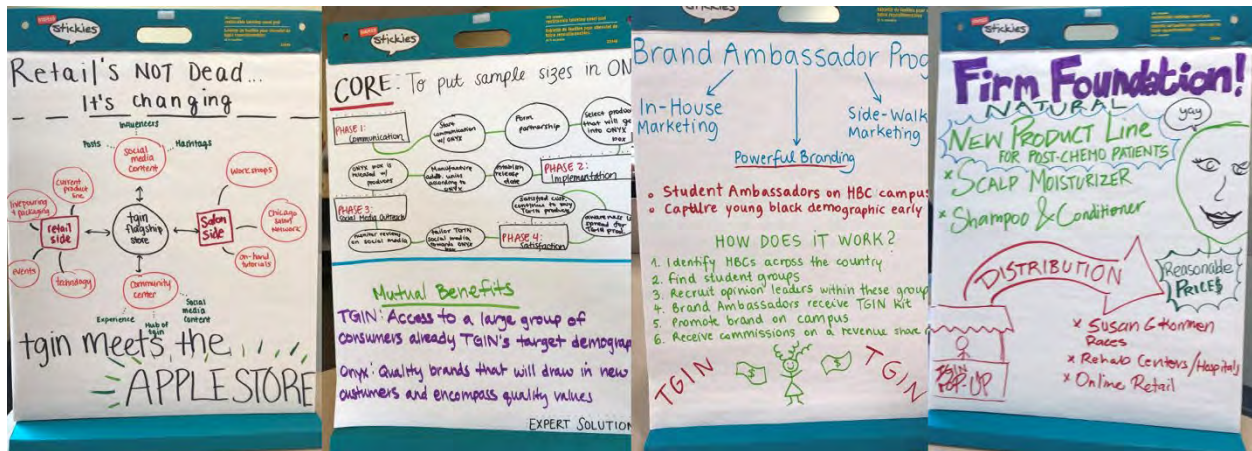 Stickies
Retail's NOT Dead...
It's changing
Influencers
Posts
Hashtags
social media content
Workshops
current product line
retail side
tgin flagship store
Salon side
Chicago Salon Network
on-hand tutorials
events
technology
Community center
Experience
Hub of tgin
Social media Content
tgin meets the
APPLE STORE
Stickies
CORE: To put sample sizes in ON
PHASE 1: Communication
Start communication w/ ONYX
Form partnership
Select produc that will go into ONYX box
ONYX box is revealed w/ products
Manufacture addt. units according to ONYX
establish release date
PHASE 2: Implementation
PHASE 3: Social Media Outreach
Satisfied cust. continue to buy TGIN products
monitor reviews on social media
tailor TGIN social media towards onyx box
PHASE 4: Satisfaction
awareness is spread for TGIN prod.
Mutual Benefits
TGIN: Access to a large group of
consumers already TGIN's target demograp
Onyx: Quality brands that will draw in new
customers and encompass quality values
EXPERT SOLUTION
Stickies
Brand Ambassador Prog
In-House Marketing
Side-Walk Marketing
Powerful Branding
Student Ambassadors on HBC campus
Capture young black demographic early
HOW DOES IT WORK?
1. Identify HBCs across the country
2. Find student groups
3. Recruit opinion leaders within these group
4. Brand Ambassadors receive TGIN kit
5. Promote brand on campus
6. Receive commissions on a revenue share
TGIN
TGIN
Stickies
Firm Foundation!
NATURAL
NEW PRODUCT LINE
FOR POST-CHEMO PATIENTS
yay
* SCALP MOISTURIZER
* Shampoo & Conditioner
DISTRIBUTION
Reasonable PRICES
TGIN POP-UP
x Susan G Kommen Races
x Rehab Centers/Hospitals
x Online Retail